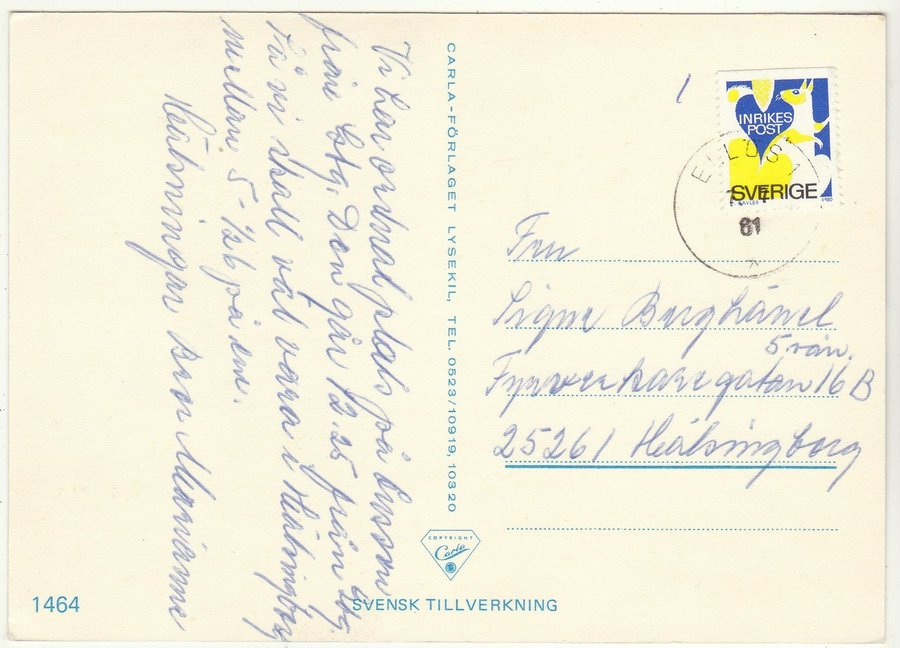 Vi har ordnat plats på bussen
från Gbg. Den går 12.25 från Gbg.
så vi skall väl vara i Hälsingborg
mellan 5-6 på em.
Hälsningar Marianne
CARLA-FÖRLAGET LYSEKIL, TEL. 0523/10919, 10320
INRIKES
POST
SVERIGE
ELLÖS
81
Fru
Signe Berghänel
5 vån.
Fyrverkaregatan 16 B
25261 Hälsingborg
COPYRIGHT
Carla
1464
SVENSK TILLVERKNING